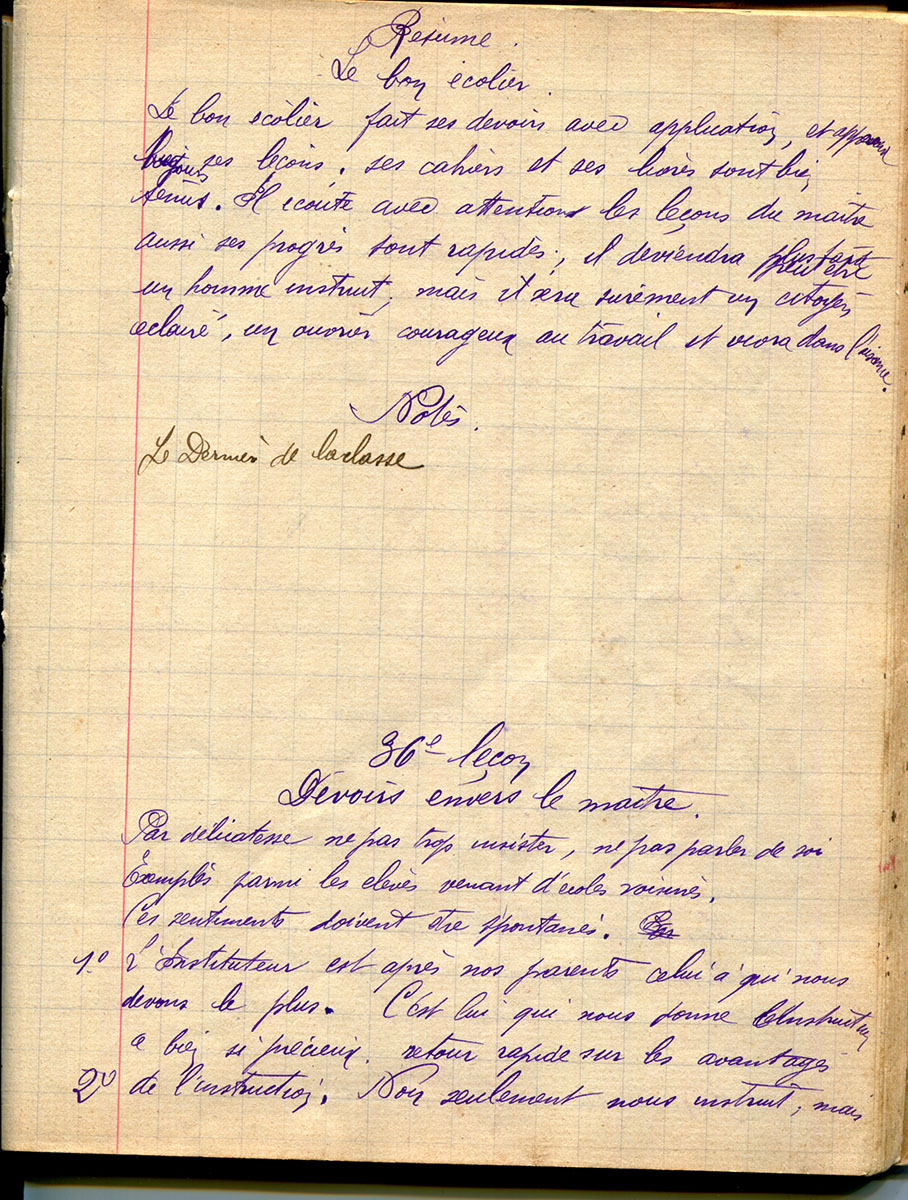 Résumé.
Le bon écolier.
Le bon écolier fait ses devoirs avec application, et apprend
toujours ses leçons, ses cahiers et ses livres sont bien
tenus. Il écoute avec attention les leçons du maître
aussi ses progrès sont rapides; il deviendra plus tard peut être
un homme instruit, mais il sera surement un citoyen
éclairé, un ouvrier courageux au travail et vivra dans l'aisance.
Notes.
Le Dernier de la classe
36e leçon
Devoirs envers le maître.
Par délicatesse ne pas trop insister, ne pas parler de soi
Exemples parmi les élèves venant d'écoles voisines.
Ces sentiments doivent être spontanés.
1o L'Instituteur est après nos parents celui à qui nous
devons le plus. C'est lui qui nous donne l'Instruction
ce bien si précieux. retour rapide sur les avantages
2o de l'instruction. Non seulement nous instruit, mais